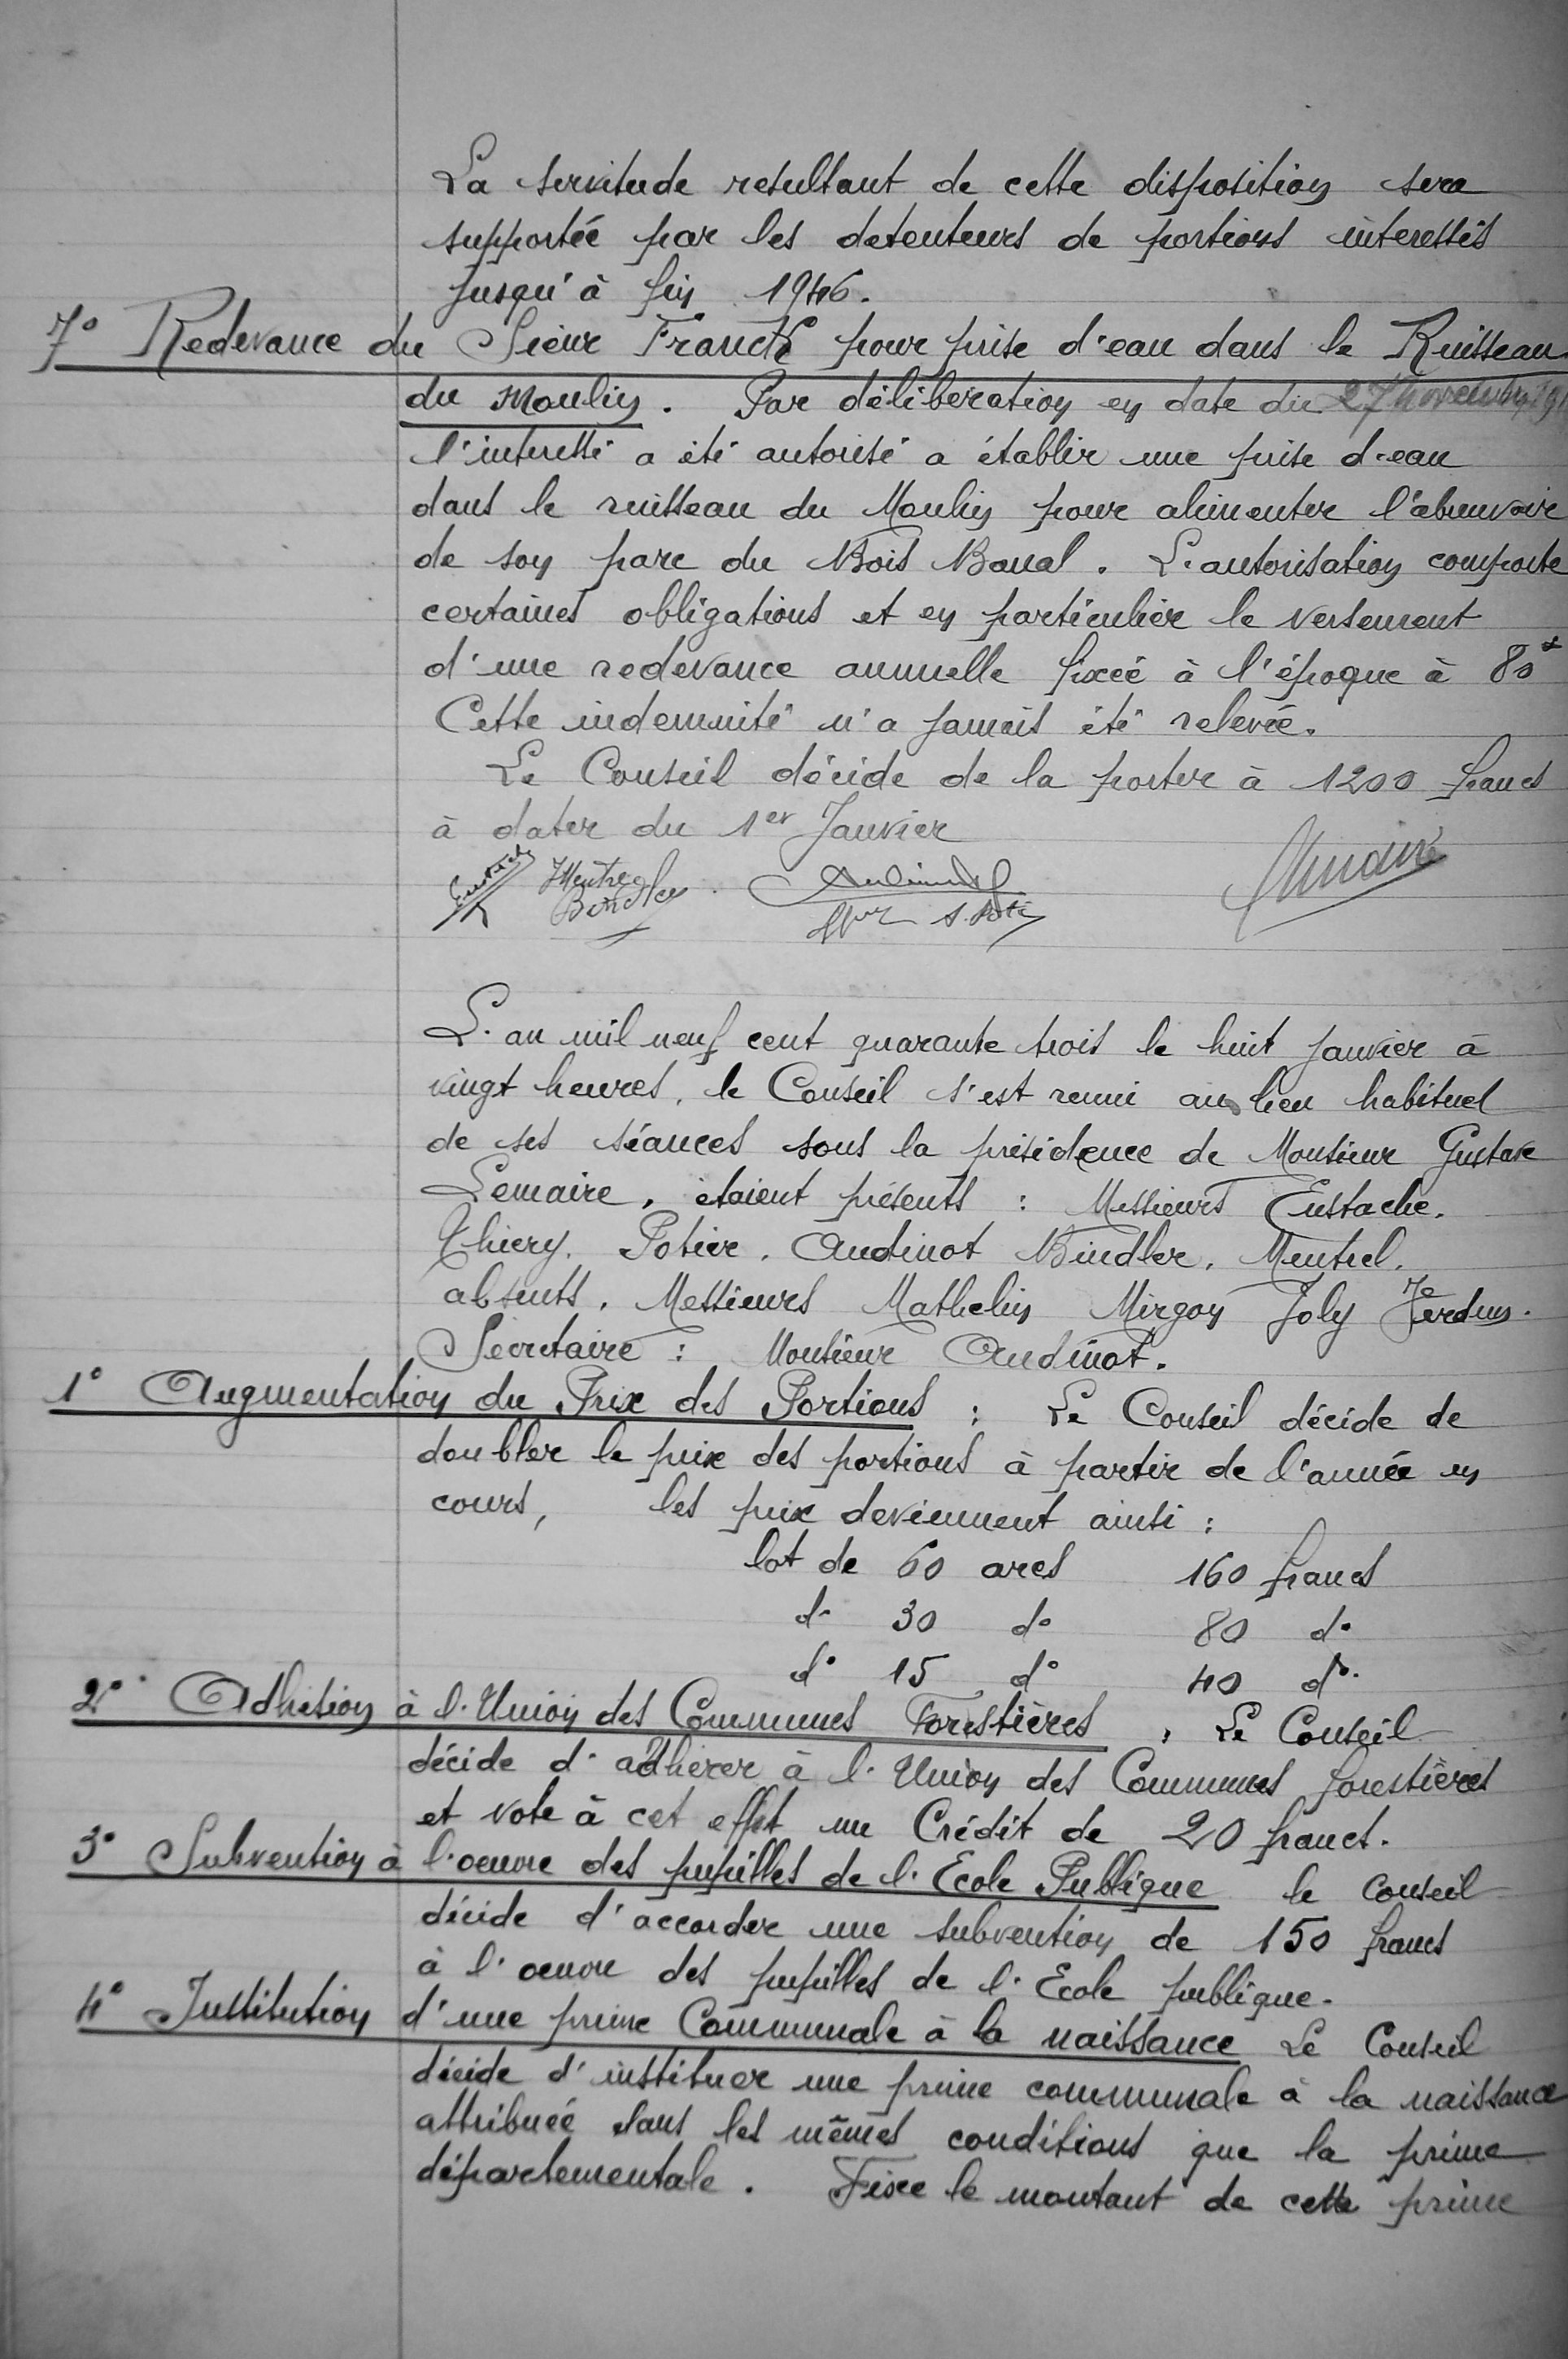 La servitude resultant de cette disposition sera
supportée par les detenteurs de portions interessés
jusqu'à fin 1946.
7° Redevance du Sieur Franck pour prise d'eau dans le Ruisseau
du Moulin. Par délibération en date du 27 novembre 19
l'interessé a été autorisé a établir une prise d'eau
dans le ruisseau du Moulin pour alimenter l'abreuvoir
de son parc du Bois Banal. L'autorisation comporte
certaines obligations et en particulier le versement
d'une redevance annuelle fixée à l'époque à 80
Cette indemnité n'a jamais été relevée.
Le Conseil décide de la porter à 1200 francs
à dater du 1er Janvier
L'an mil neuf cent quarante trois le huit janvier à
vingt heures, le Conseil s'est reuni au lieu habituel
de ses séances sous la présidence de Monsieur Gustave
Lemaire, étaient présents : Messieurs Eustache.
Thiery. Potier. Audinot Bindler. Mentrel.
absents. Messieurs Mathelin Mirgon Joly
Secretaire : Monsieur Audinot.
1° Augmentation du Prix des Portions : Le Conseil décide de
doubler le prix des portions à partir de l'année en
cours, les prix deviennent ainsi :
lot de 60 ares 160 francs
d° 30 d° 80 d°
d° 15 d° 40 d°.
2° Adhésion à l'Union des Communes Forestières : Le Conseil
décide d'adhérer à l'Union des Communes forestières
et vote à cet effet un Crédit de 20 francs.
3° Subvention à l'oeuvre des pupilles de l'Ecole Publique le Conseil
décide d'accorder une subvention de 150 francs
à l'oeuvre des pupilles de l'Ecole publique.
4° Institution d'une prime Communale à la naissance Le Conseil
décide d'instituer une prime communale à la naissance
attribuée dans les mêmes conditions que la prime
départementale. Fixe le montant de cette prime